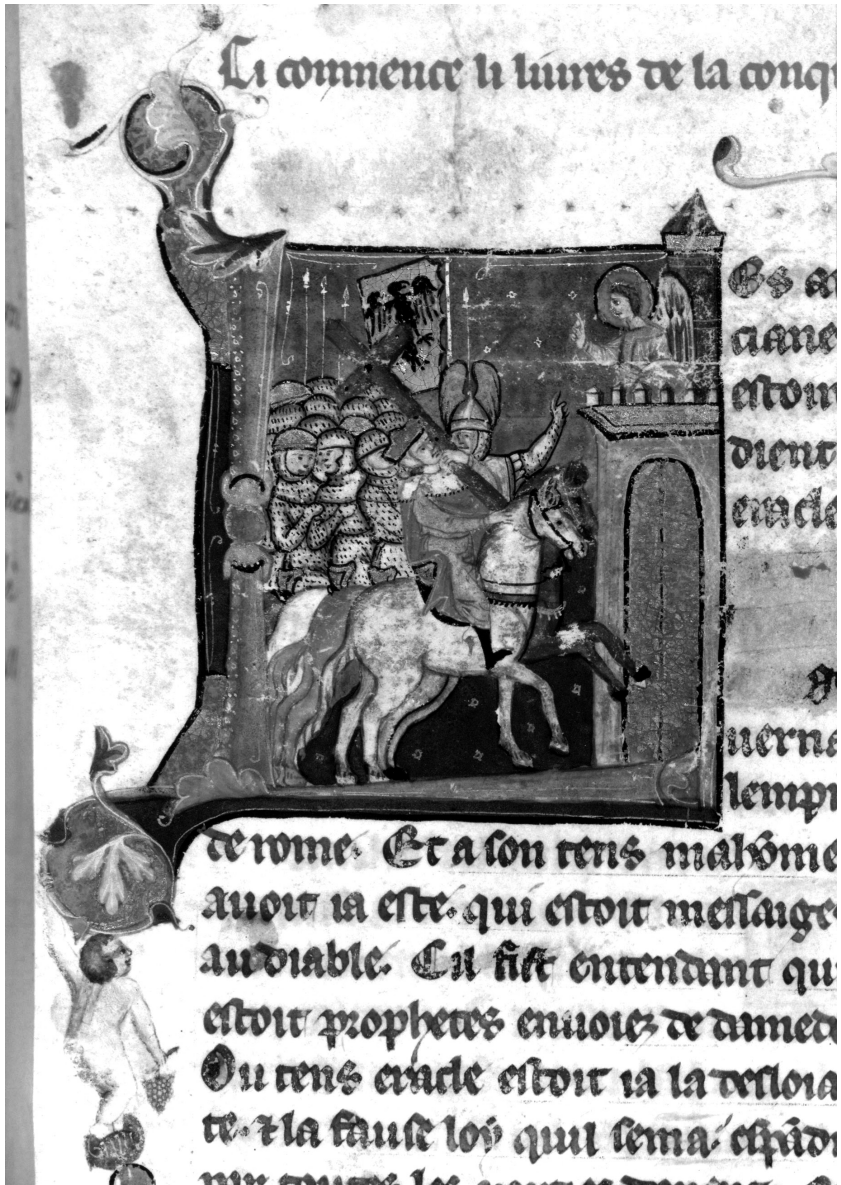 Ci commence li liures de la conq
Es a
ciane
estoir
dient
eracle
uerna
lempi
de rome. Et a son tens mahōme
auoit ia este. qui estoit messaige
au diable. Cil fist entendant qu
estoit prophetes enuoiez de damede
Ou tens eracle estoit ia la desloia
te. ⁊ la fause loy quil sema. espād